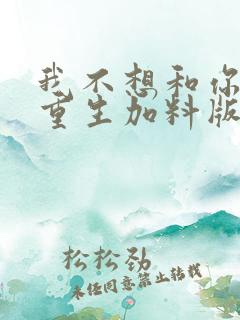 我不想和你
重生加料版
松松劲
未经同意禁止转载